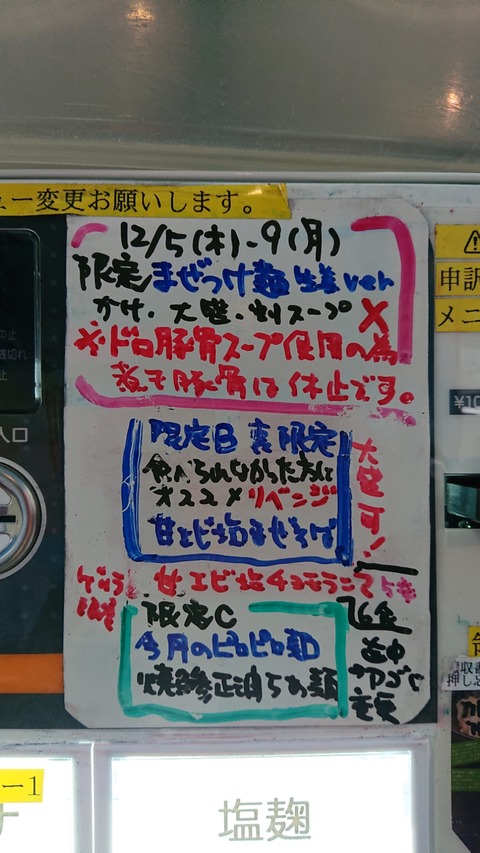 ュー変更お願いします。
12/5(木)-9(月)
限定まぜつけ麺生姜ver
かけ・大盛・割スープ X
※ドロ豚骨スープ使用の為
煮干豚骨は休止です。
限定B 裏限定
食べられなかった方に
オススメリベンジ
甘エビ塩まぜそば
大盛可!
ゲリラ
甘エビ塩
限定C
今月のピロピロ麺
申訳
メニ
¥10
入口
切れ
止
領収書
押し
ー1
ナ
塩麹